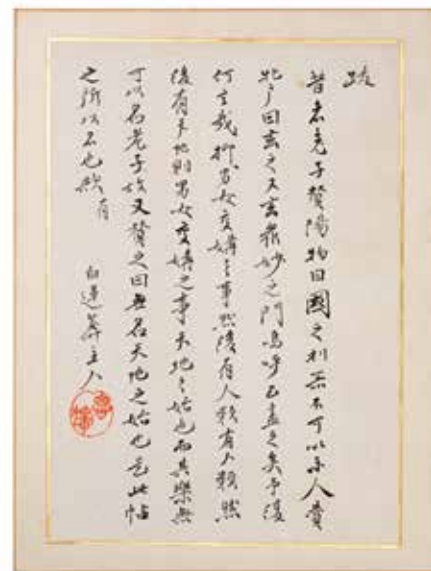 跋
昔者老子賛陽物曰國之利器不可以示人賛
牝戸曰玄之又玄衆妙之門嗚呼已盡之矣予復
何言哉抑男女交媾之事然後有人類有人類然
後有天地則男女交媾之事天地之始也而其樂無
可以名老子故又賛之曰無名天地之始也是此帖
之所以名也歟 有
白蓮菴主人